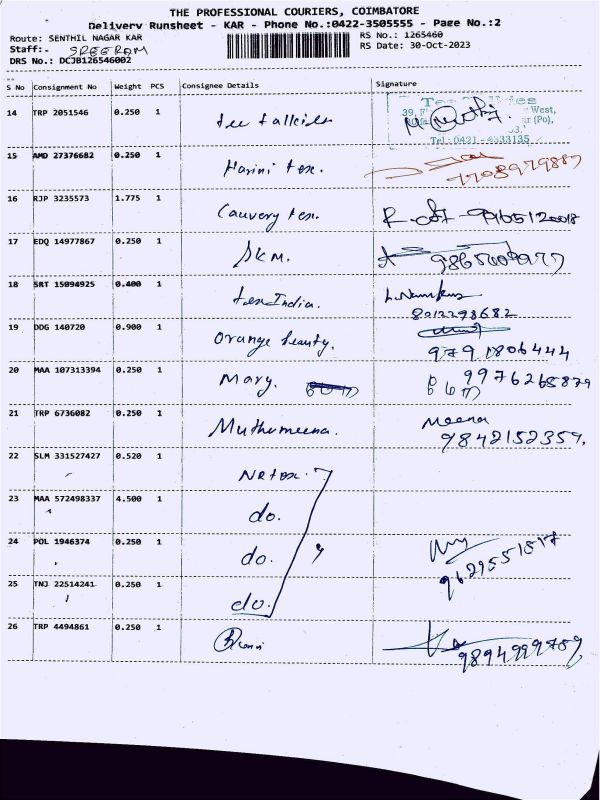 THE PROFESSIONAL COURIERS, COIMBATORE
Delivery Runsheet - KAR - Phone No.:0422-3505555 - Page No.:2
Route: SENTHIL NAGAR KAR RS No.: 1265460
Staff:- SREERAM RS Date: 30-Oct-2023
DRS No.: DCJB126546002
S No Consignment No Weight PCS Consignee Details Signature
14 TRP 2051546 0.250 1
West,
(Po),
Tel: 0421-4333135
15 AMD 27376682 0.250 1 Harini tex. 7708979887
16 RJP 3235573 1.775 1 Cauvery tex.
17 EDQ 14977867 0.250 1 SKM.
18 SRT 15094925 0.400 1 tex India.
8012298682
19 DDG 140720 0.900 1 Orange beauty.
9791806444
20 MAA 107313394 0.250 1 Mary. 9976265879
21 TRP 6736082 0.250 1 Muthumeena. Meena
9842152359,
22 SLM 331527427 0.520 1 NR tex.
23 MAA 572498337 4.500 1 do.
24 POL 1946374 0.250 1 do.
9629551817
25 TNJ 22514241 1 0.250 1 do.
26 TRP 4494861 0.250 1
9894999789